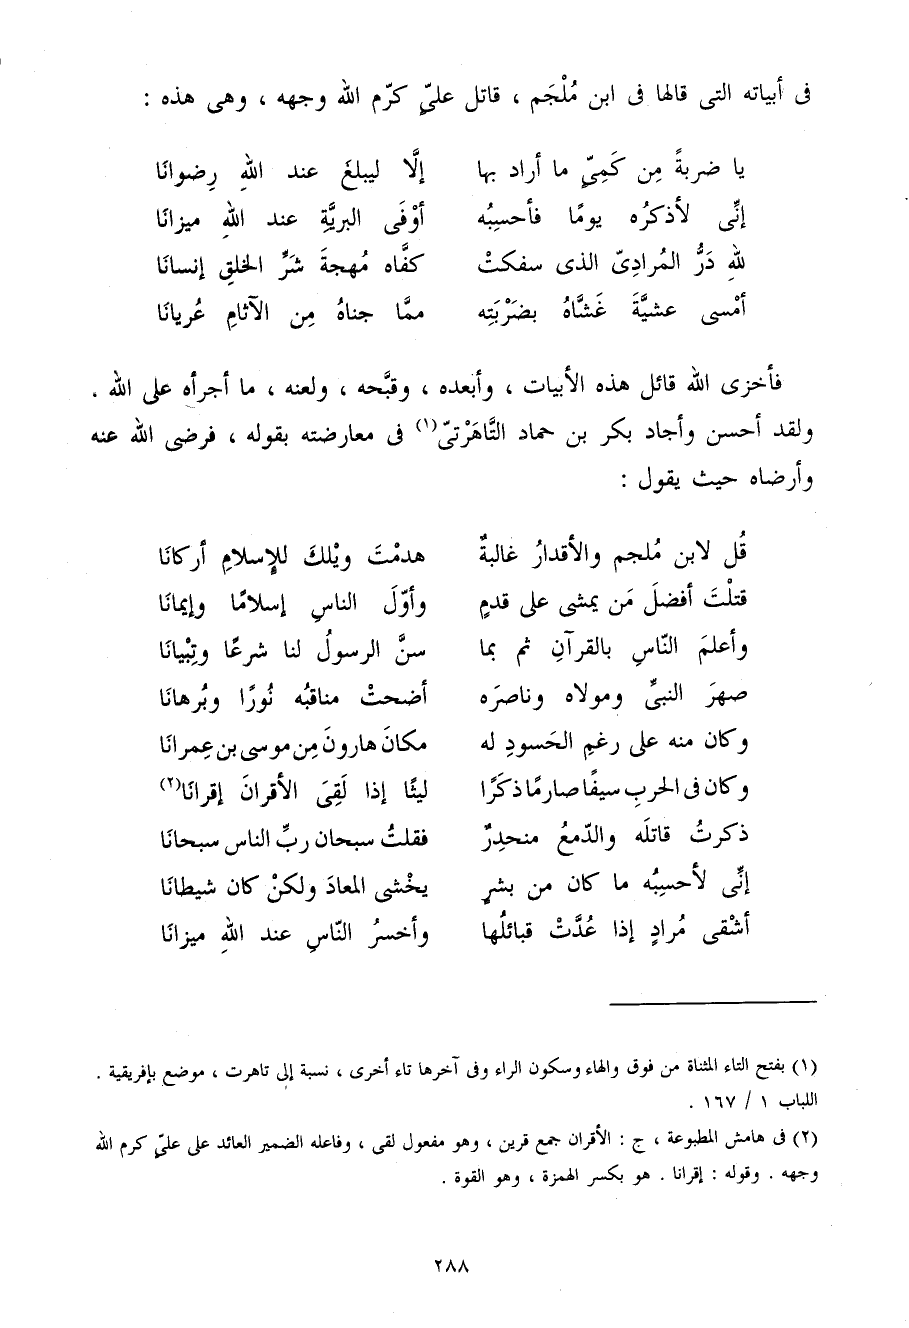 فى أبياته التى قالها فى ابن مُلْجَم ، قاتل علىٍّ كرّم الله وجهه ، وهى هذه :
يا ضربةً مِن كَمِىٍّ ما أراد بها إلَّا ليبلغَ عند اللهِ رِضوانَا
إنِّى لأذكرُه يومًا فأحسِبُه أوْفَى البريَّةِ عند اللهِ ميزانَا
للهِ دَرُّ المُرادِىّ الذى سفكتْ كفَّاه مُهجةَ شَرِّ الخلقِ إنسانَا
أمْسى عشيَّةَ غَشَّاهُ بضَرْبَتِه ممَّا جناهُ مِن الآثامِ عُريانَا
فأخزى الله قائل هذه الأبيات ، وأبعده ، وقبَّحه ، ولعنه ، ما أجرأه على الله .
ولقد أحسن وأجاد بكر بن حماد التَّاهَرْتىّ(١) فى معارضته بقوله ، فرضى الله عنه
وأرضاه حيث يقول :
قُل لابن مُلجم والأقدارُ غالبةٌ هدمْتَ ويْلكَ للإسلامِ أركانَا
قتلْتَ أفضلَ مَن يمشى على قدمٍ وأوّلَ الناسِ إسلامًا وإيمانَا
وأعلمَ النّاسِ بالقرآنِ ثم بما سنَّ الرسولُ لنا شرعًا وتِبْيانَا
صهرَ النبىِّ ومولاه وناصرَه أضحتْ مناقبُه نُورًا وبُرهانَا
وكان منه على رغمِ الحَسودِ له مكانَ هارونَ مِن موسى بن عِمرانَا
وكان فى الحربِ سيفًا صارمًا ذكَرًا ليثًا إذا لَقِىَ الأقرانَ إقرانَا(٢)
ذكرتُ قاتلَه والدّمعُ منحدِرٌ فقلتُ سبحان ربِّ الناس سبحانَا
إنِّى لأحسِبُه ما كان من بشرٍ يخْشى المعادَ ولكنْ كان شيطانَا
أشْقى مُرادٍ إذا عُدَّتْ قبائلُها وأخسرُ النّاسِ عند اللهِ ميزانَا
(١) بفتح التاء المثناة من فوق والهاء وسكون الراء وفى آخرها تاء أخرى ، نسبة إلى تاهرت ، موضع بإفريقية .
اللباب ١ / ١٦٧ .
(٢) فى هامش المطبوعة ، ج : الأقران جمع قرين ، وهو مفعول لقى ، وفاعله الضمير العائد على علىّ كرم الله
وجهه . وقوله : إقرانا . هو بكسر الهمزة ، وهو القوة .
٢٨٨